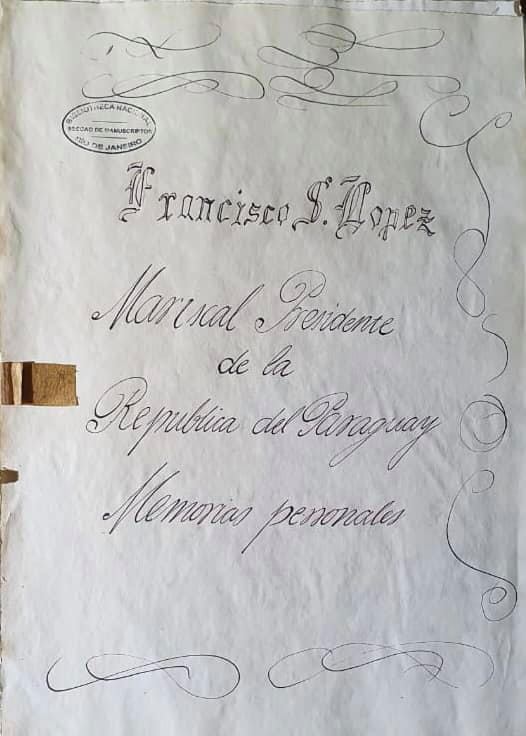 BIBLIOTHECA NACIONAL
SECÇAO DE MANUSCRIPTOS
RIO DE JANEIRO
Francisco S. Lopez
Mariscal Presidente
de la
Republica del Paraguay
Memorias personales